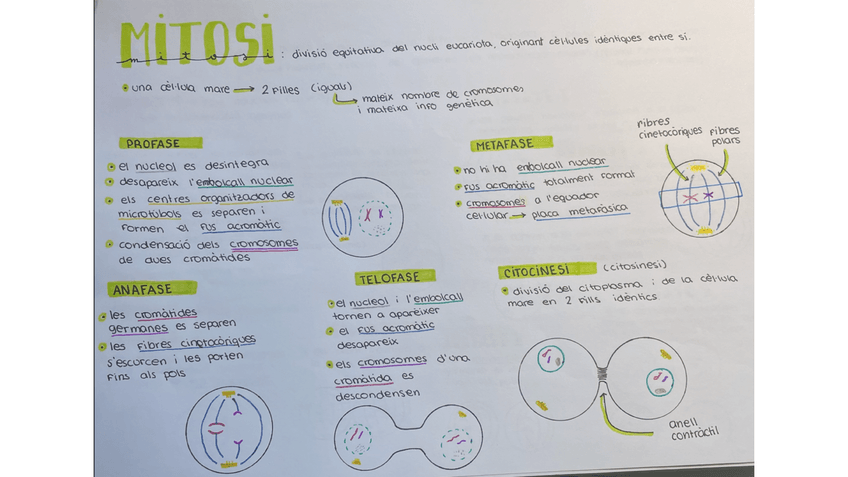 MITOSI
mitosi : divisió equitativa del nucli eucariota, originant cèl·lules idèntiques entre si.
una cèl·lula mare → 2 filles (iguals)
mateix nombre de cromosomes
i mateixa info genètica
PROFASE
el nucleol es desintegra
desapareix l'embolcall nuclear
els centres organitzadors de
microtúbuls es separen i
formen el fus acromàtic
condensació dels cromosomes
de dues cromàtides
METAFASE
no hi ha embolcall nuclear
fus acromàtic totalment format
cromosomes a l'equador
cel·lular → placa metafàsica
fibres
cinetocòriques
fibres
polars
ANAFASE
les cromàtides
germanes es separen
les fibres cinetocòriques
s'escurcen i les porten
fins als pols
TELOFASE
el nucleol i l'embolcall
tornen a aparèixer
el fus acromàtic
desapareix
els cromosomes d'una
cromàtida es
descondensen
CITOCINESI (citosinesi)
divisió del citoplasma i de la cèl·lula
mare en 2 fills idèntics
anell
contràctil